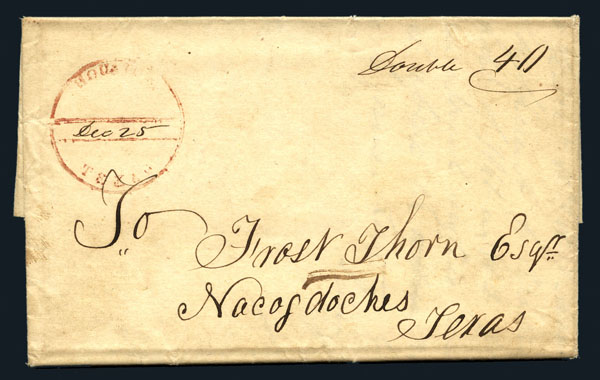 Double 40
HOUSTON
Dec 25
TEXAS
To
Frost Thorn Esqr.
Nacogdoches
Texas